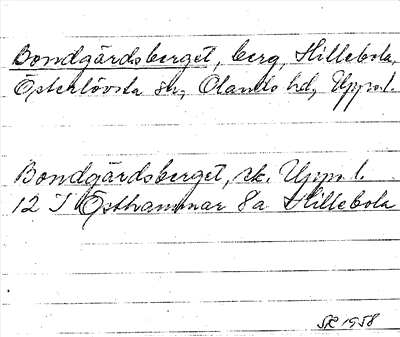 Bondgårdsberget, berg, Hillebola,
Österlövsta sn, Olands hd, Uppl.
Bondgårdsberget, ek. Uppl.
12 I Östhammar 8a Hillebola
SR 1958